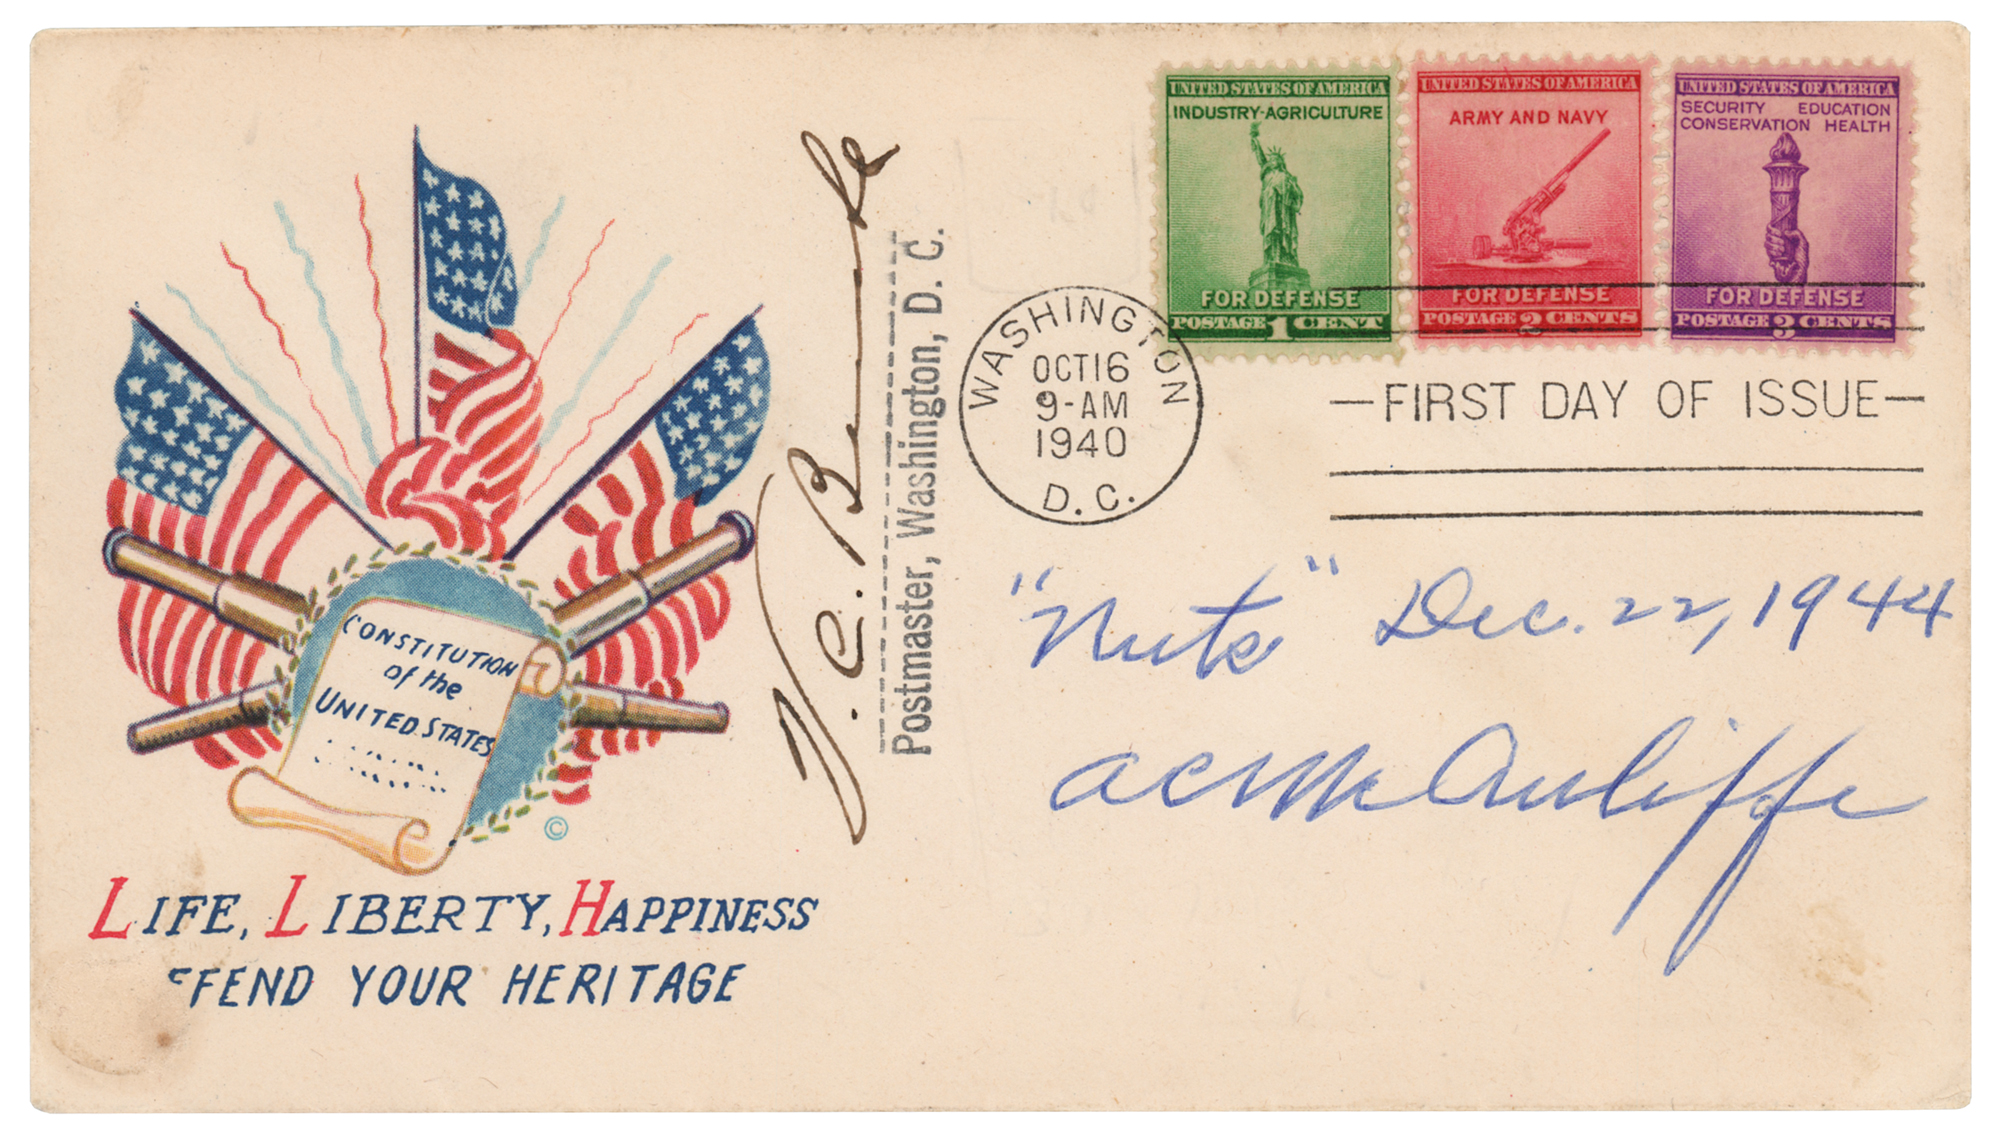 UNITED STATES OF AMERICA
INDUSTRY-AGRICULTURE
FOR DEFENSE
POSTAGE 1 CENT
UNITED STATES OF AMERICA
ARMY AND NAVY
FOR DEFENSE
POSTAGE 2 CENTS
UNITED STATES OF AMERICA
SECURITY EDUCATION
CONSERVATION HEALTH
FOR DEFENSE
POSTAGE 3 CENTS
WASHINGTON
OCT 16
9-AM
1940
D.C.
—FIRST DAY OF ISSUE—
Postmaster, Washington, D. C.
"Nuts" Dec. 22, 1944
ACMcAuliffe
CONSTITUTION
of the
UNITED STATES
©
LIFE, LIBERTY, HAPPINESS
EFEND YOUR HERITAGE